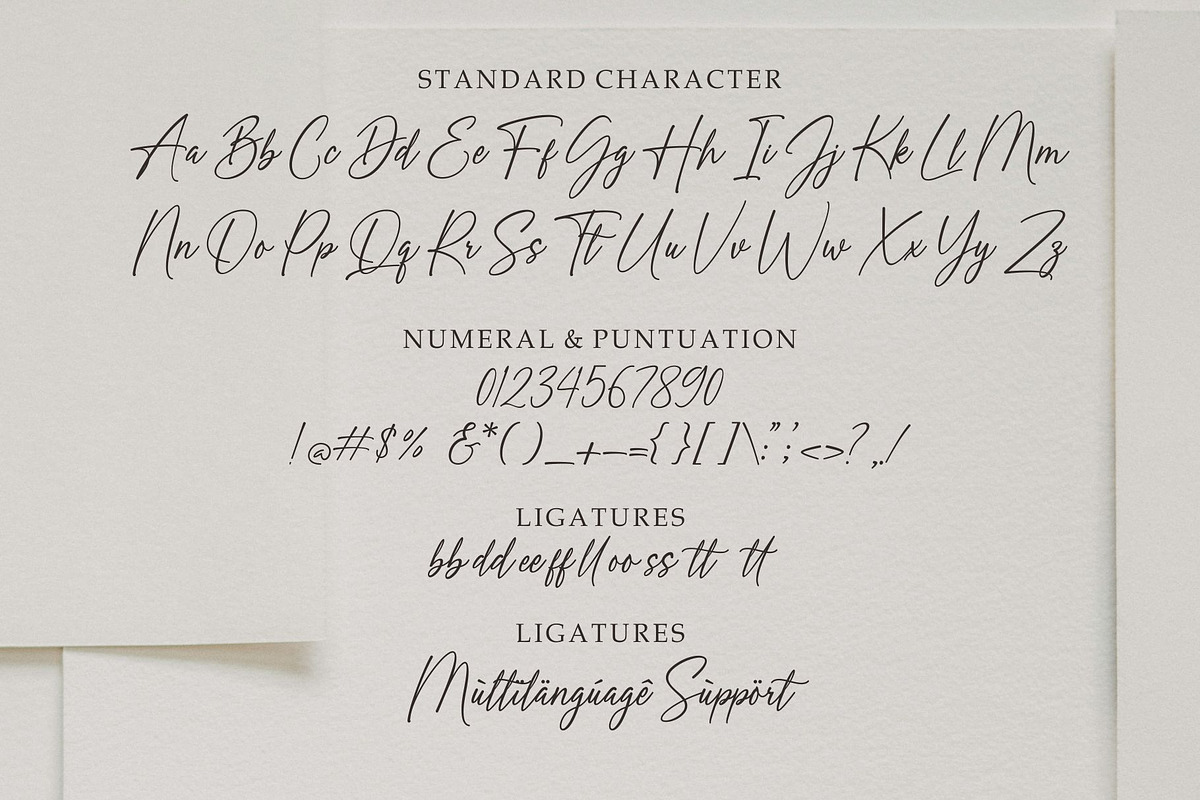 STANDARD CHARACTER
Aa Bb Cc Dd Ee Ff Gg Hh Ii Jj Kk Ll Mm
Nn Oo Pp Qq Rr Ss Tt Uu Vv Ww Xx Yy Zz
NUMERAL & PUNTUATION
01234567890
!@#$% &*()_+-={}[]\:";'<>?,./
LIGATURES
bb dd ee ff ll oo ss tt tt
LIGATURES
Mùltïlängúagê Sùppört